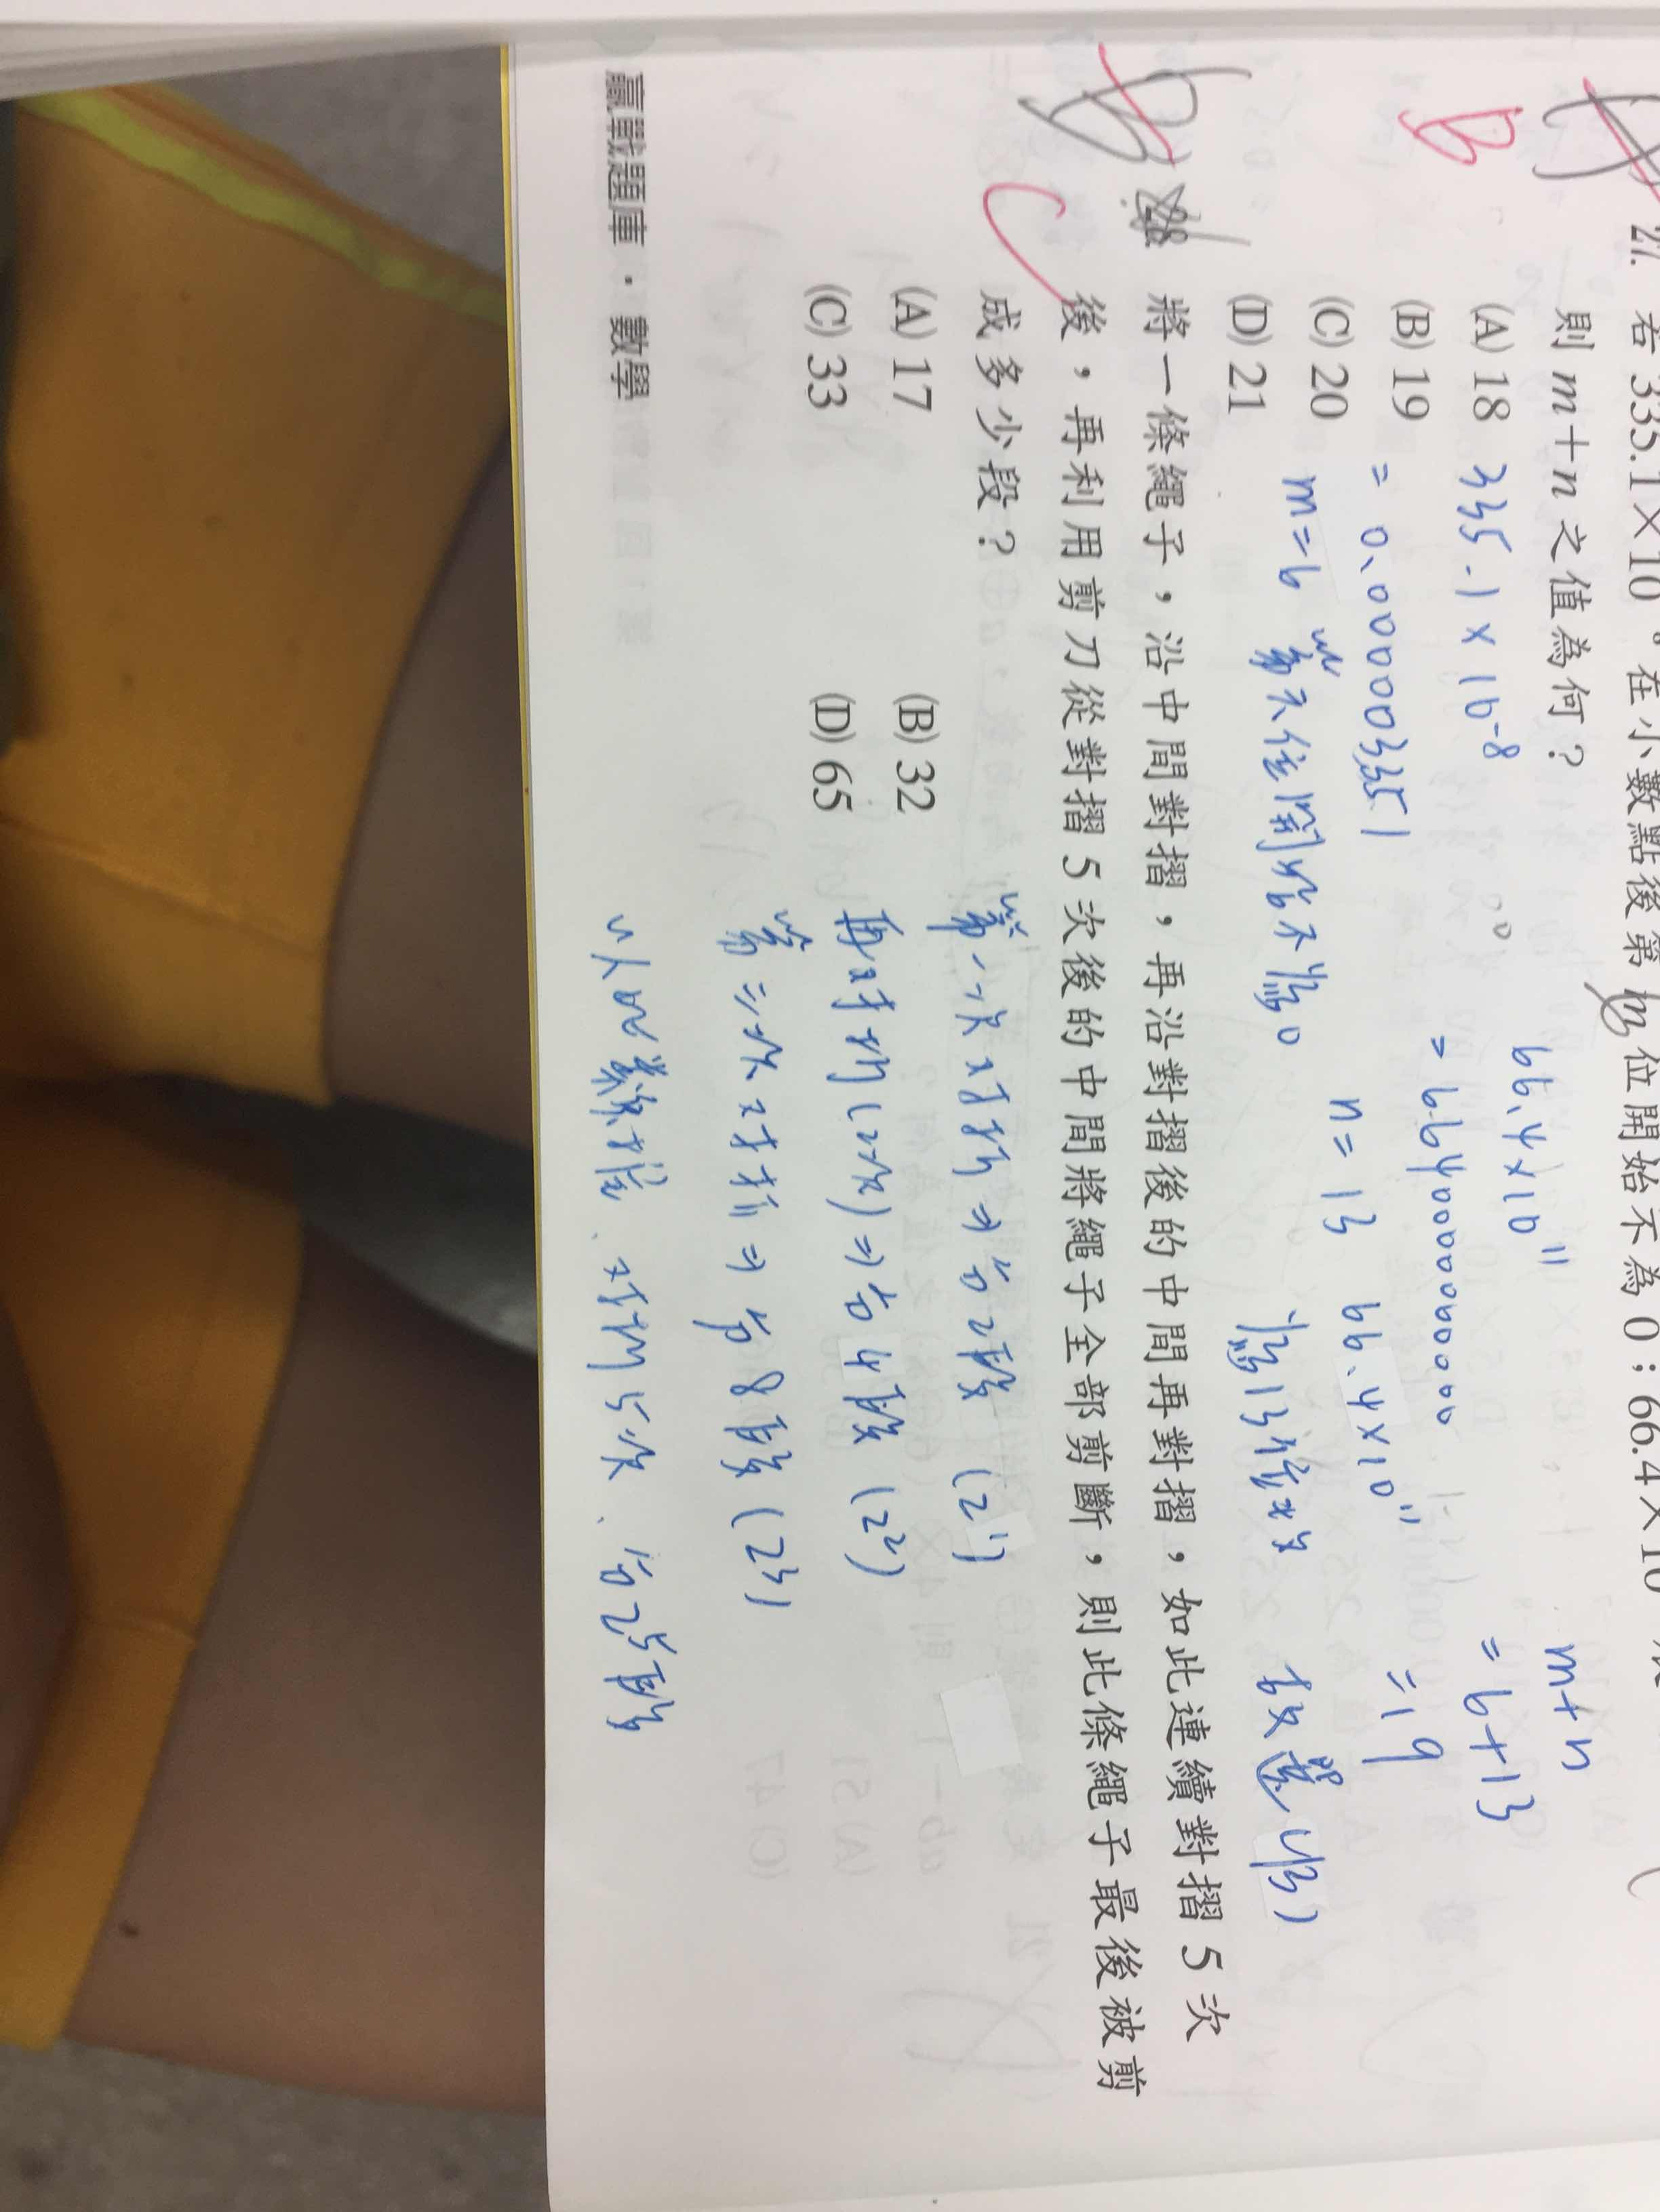 27. 若 335.1×10 在小數點後第 m 位開始不為 0；66.4×10
則 m+n 之值為何？
(A) 18
(B) 19
(C) 20
(D) 21
335.1×10⁻⁸
= 0.000003351
m=6 第六位開始不為0
66.4×10¹¹
= 6640000000000
n=13 66.4×10¹¹
為13位數
m+n
=6+13
=19
故選(B)
B
28. 將一條繩子，沿中間對摺，再沿對摺後的中間再對摺，如此連續對摺 5 次
後，再利用剪刀從對摺 5 次後的中間將繩子全部剪斷，則此條繩子最後被剪
成多少段？
(A) 17 (B) 32
(C) 33 (D) 65
C
第一次對折⇒有2段 (2¹)
再對折(2次)⇒有4段 (2²)
第三次對折⇒有8段 (2³)
以此類推、對折5次、有2⁵段
贏戰題庫．數學